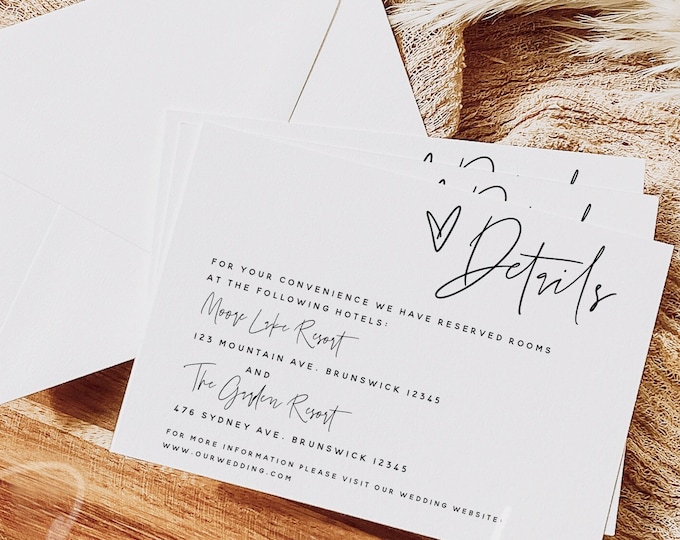 Details
FOR YOUR CONVENIENCE WE HAVE RESERVED ROOMS
AT THE FOLLOWING HOTELS:
Moore Lake Resort
123 MOUNTAIN AVE. BRUNSWICK 12345
AND
The Garden Resort
476 SYDNEY AVE. BRUNSWICK 12345
FOR MORE INFORMATION PLEASE VISIT OUR WEDDING WEBSITE:
WWW.OURWEDDING.COM